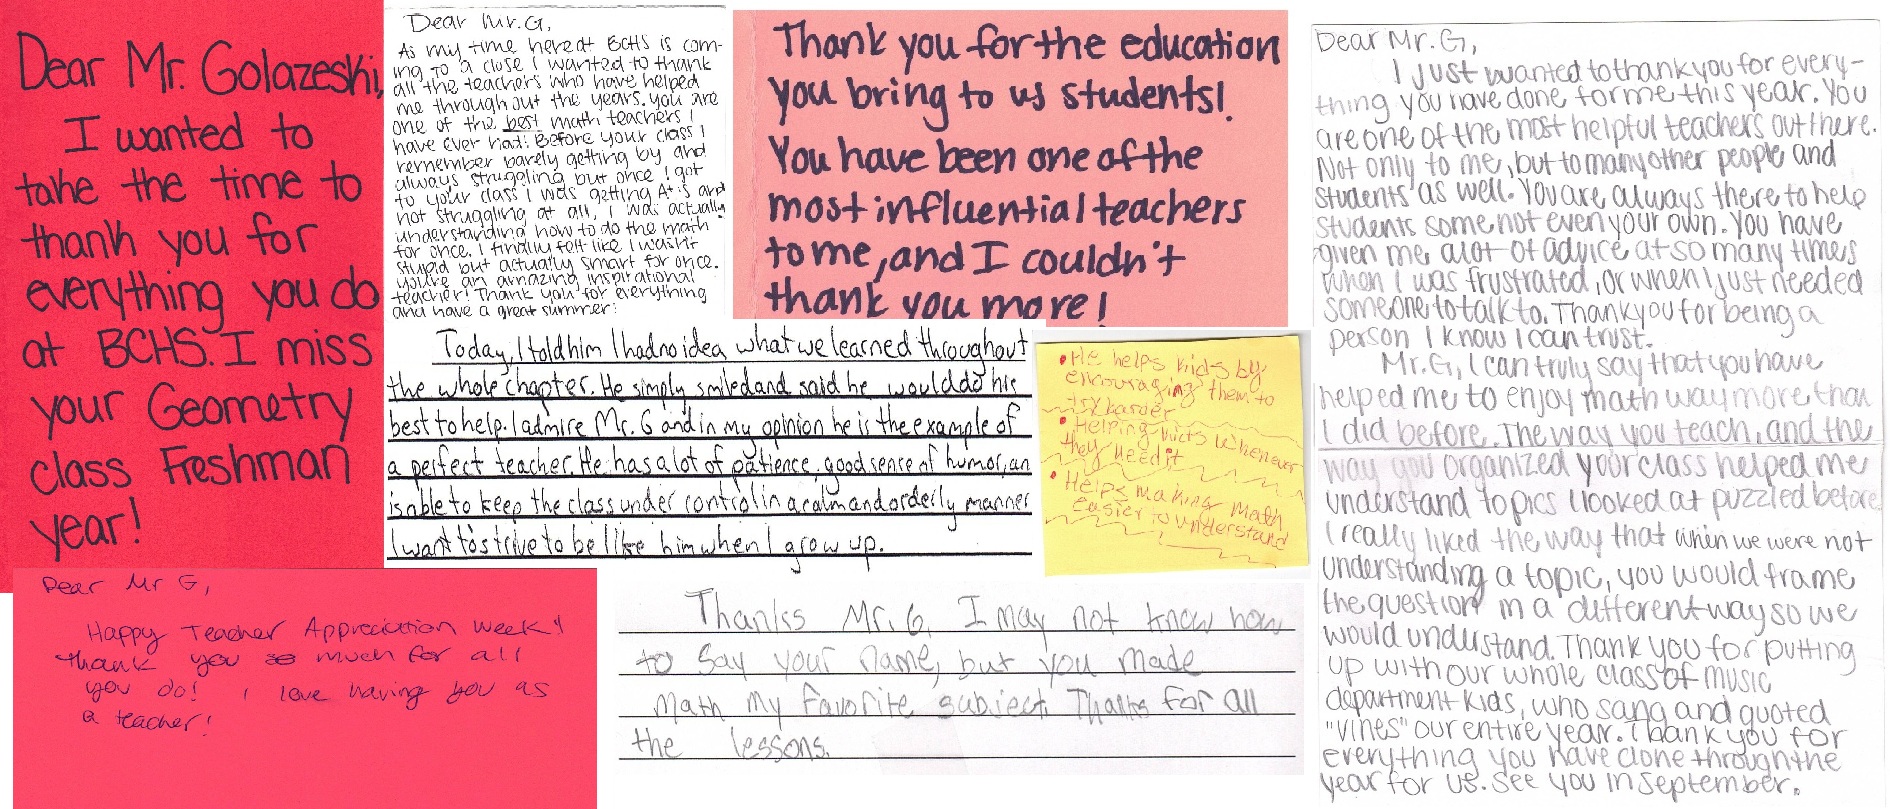 Dear Mr. Golazeski,
I wanted to
take the time to
thank you for
everything you do
at BCHS. I miss
your Geometry
class Freshman
year!
Dear Mr. G,
As my time here at BCHS is com-
ing to a close I wanted to thank
all the teachers who have helped
me through out the years. you are
one of the best math teachers I
have ever had! Before your class I
remember barely getting by and
always struggling but once I got
to your class I was getting A+'s and
not struggling at all, I was actually
understanding how to do the math
for once. I finally felt like I wasn't
stupid but actually smart for once.
You're an amazing inspirational
teacher! Thank you for everything
and have a great summer!
Thank you for the education
you bring to us students!
You have been one of the
most influential teachers
to me, and I couldn't
thank you more!
Today, I told him I had no idea what we learned throughout
the whole chapter. He simply smiled and said he would do his
best to help. I admire Mr. G and in my opinion he is the example of
a perfect teacher. He has a lot of patience, good sense of humor, an
is able to keep the class under control in a calm and orderly manner
I want to strive to be like him when I grow up.
• He helps kids by
encouraging them to
try harder
• Helping kids whenever
they need it
• Helps making math
easier to understand
Dear Mr G,
Happy Teacher Appreciation week!
thank you so much for all
you do! I love having you as
a teacher!
Thanks Mr. G, I may not know how
to say your name, but you made
math my favorite subject. Thanks for all
the lessons.
Dear Mr. G,
I just wanted to thank you for every-
thing you have done for me this year. You
are one of the most helpful teachers out there.
Not only to me, but to many other people and
students as well. You are always there to help
students some not even your own. You have
given me alot of advice at so many times
when I was frustrated, or when I just needed
someone to talk to. Thank you for being a
person I know I can trust.
Mr. G, I can truly say that you have
helped me to enjoy math way more than
I did before. The way you teach, and the
way you organized your class helped me
understand topics I looked at puzzled before
I really liked the way that when we were not
understanding a topic, you would frame
the question in a different way so we
would understand. Thank you for putting
up with our whole class of music
department kids, who sang and quoted
"vines" our entire year. Thank you for
everything you have done through the
year for us. See you in September.